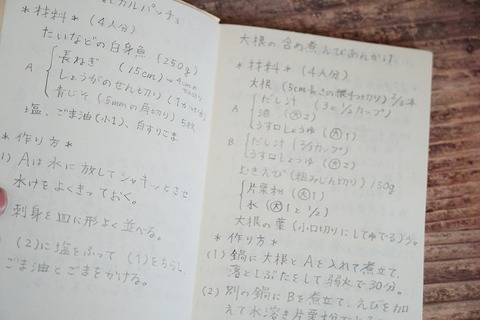 カルパッチョ
*材料*(4人分)
たいなどの白身魚 [250g]
A
長ねぎ (15cm)→4cmの
しょうがのせん切り (1かけ分)
青じそ (5mmの角切り) 5枚
塩、ごま油(小1)、白すりごま
*作り方*
1) Aは水に放してシャキッとさせ
水けをよくきっておく。
刺身を皿に形よく並べる。
(2)に塩をふって (1)をちらし、
ごま油とごまをかける。
大根の含め煮えびあんかけ
*材料*(4人分)
大根 (5cm長さの横4つ切り) 2/3本
A
だし汁 (3と1/2カップ)
酒 (大2)
うす口しょうゆ (大1)
B
だし汁 (2/3カップ)
うす口しょうゆ (大2)
むきえび (粗みじん切り) 150g
片栗粉 (大1)
水 (大1と1/2)
大根の葉 (小口切りにしてゆでる) 少
*作り方*
(1) 鍋に大根とAを入れて煮立て、
落としぶたをして弱火で30分。
(2) 別の鍋にBを煮立て、えびを加
えて水溶き片栗粉で